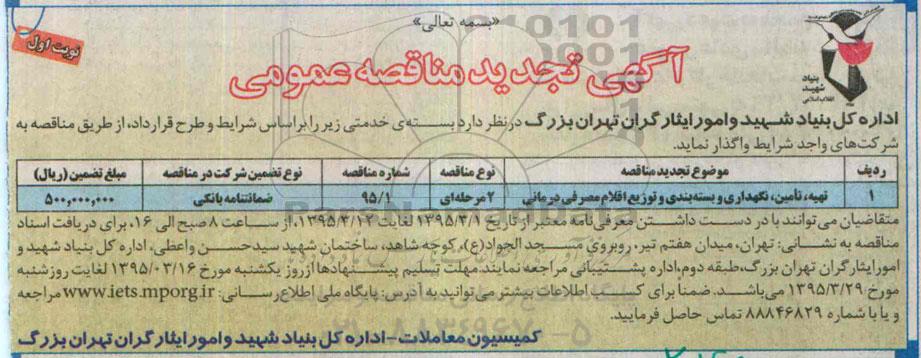 «بسمه تعالی»
نوبت اول
آگهی تجدید مناقصه عمومی
بنیاد
شهید
انقلاب اسلامی
اداره کل بنیاد شهید و امور ایثارگران تهران بزرگ در نظر دارد بسته‌ی خدمتی زیر را براساس شرایط و طرح قرارداد، از طریق مناقصه به
شرکت‌های واجد شرایط واگذار نماید.
ردیف موضوع تجدید مناقصه نوع مناقصه شماره مناقصه نوع تضمین شرکت در مناقصه مبلغ تضمین (ریال)
۱ تهیه، تأمین، نگهداری و بسته‌بندی و توزیع اقلام مصرفی درمانی ۲ مرحله‌ای ۹۵/۱ ضمانتنامه بانکی ۵۰۰,۰۰۰,۰۰۰
متقاضیان می‌توانند با در دست داشتن معرفی‌نامه معتبر از تاریخ ۱۳۹۵/۳/۱ لغایت ۱۳۹۵/۳/۱۲، از ساعت ۸ صبح الی ۱۶، برای دریافت اسناد
مناقصه به نشانی: تهران، میدان هفتم تیر، روبروی مسجد الجواد(ع)، کوچه شاهد، ساختمان شهید سیدحسن واعظی، اداره کل بنیاد شهید و
امور ایثارگران تهران بزرگ، طبقه دوم، اداره پشتیبانی مراجعه نمایند. مهلت تسلیم پیشنهادها از روز یکشنبه مورخ ۱۳۹۵/۰۳/۱۶ لغایت روز شنبه
مورخ ۱۳۹۵/۳/۲۹ می‌باشد. ضمنا برای کسب اطلاعات بیشتر می‌توانید به آدرس: پایگاه ملی اطلاع‌رسانی: www.iets.mporg.ir مراجعه
و یا با شماره ۸۸۸۴۶۸۲۹ تماس حاصل فرمایید.
کمیسیون معاملات - اداره کل بنیاد شهید و امور ایثارگران تهران بزرگ